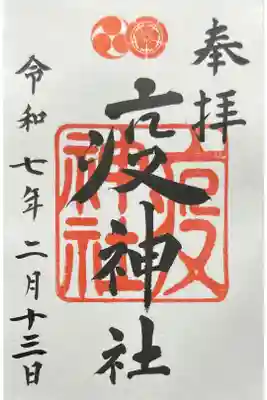 奉拝
疫神社
疫神社
令和七年二月十三日